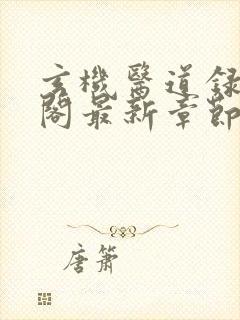 玄機醫道錄
閣最新章節
唐簫